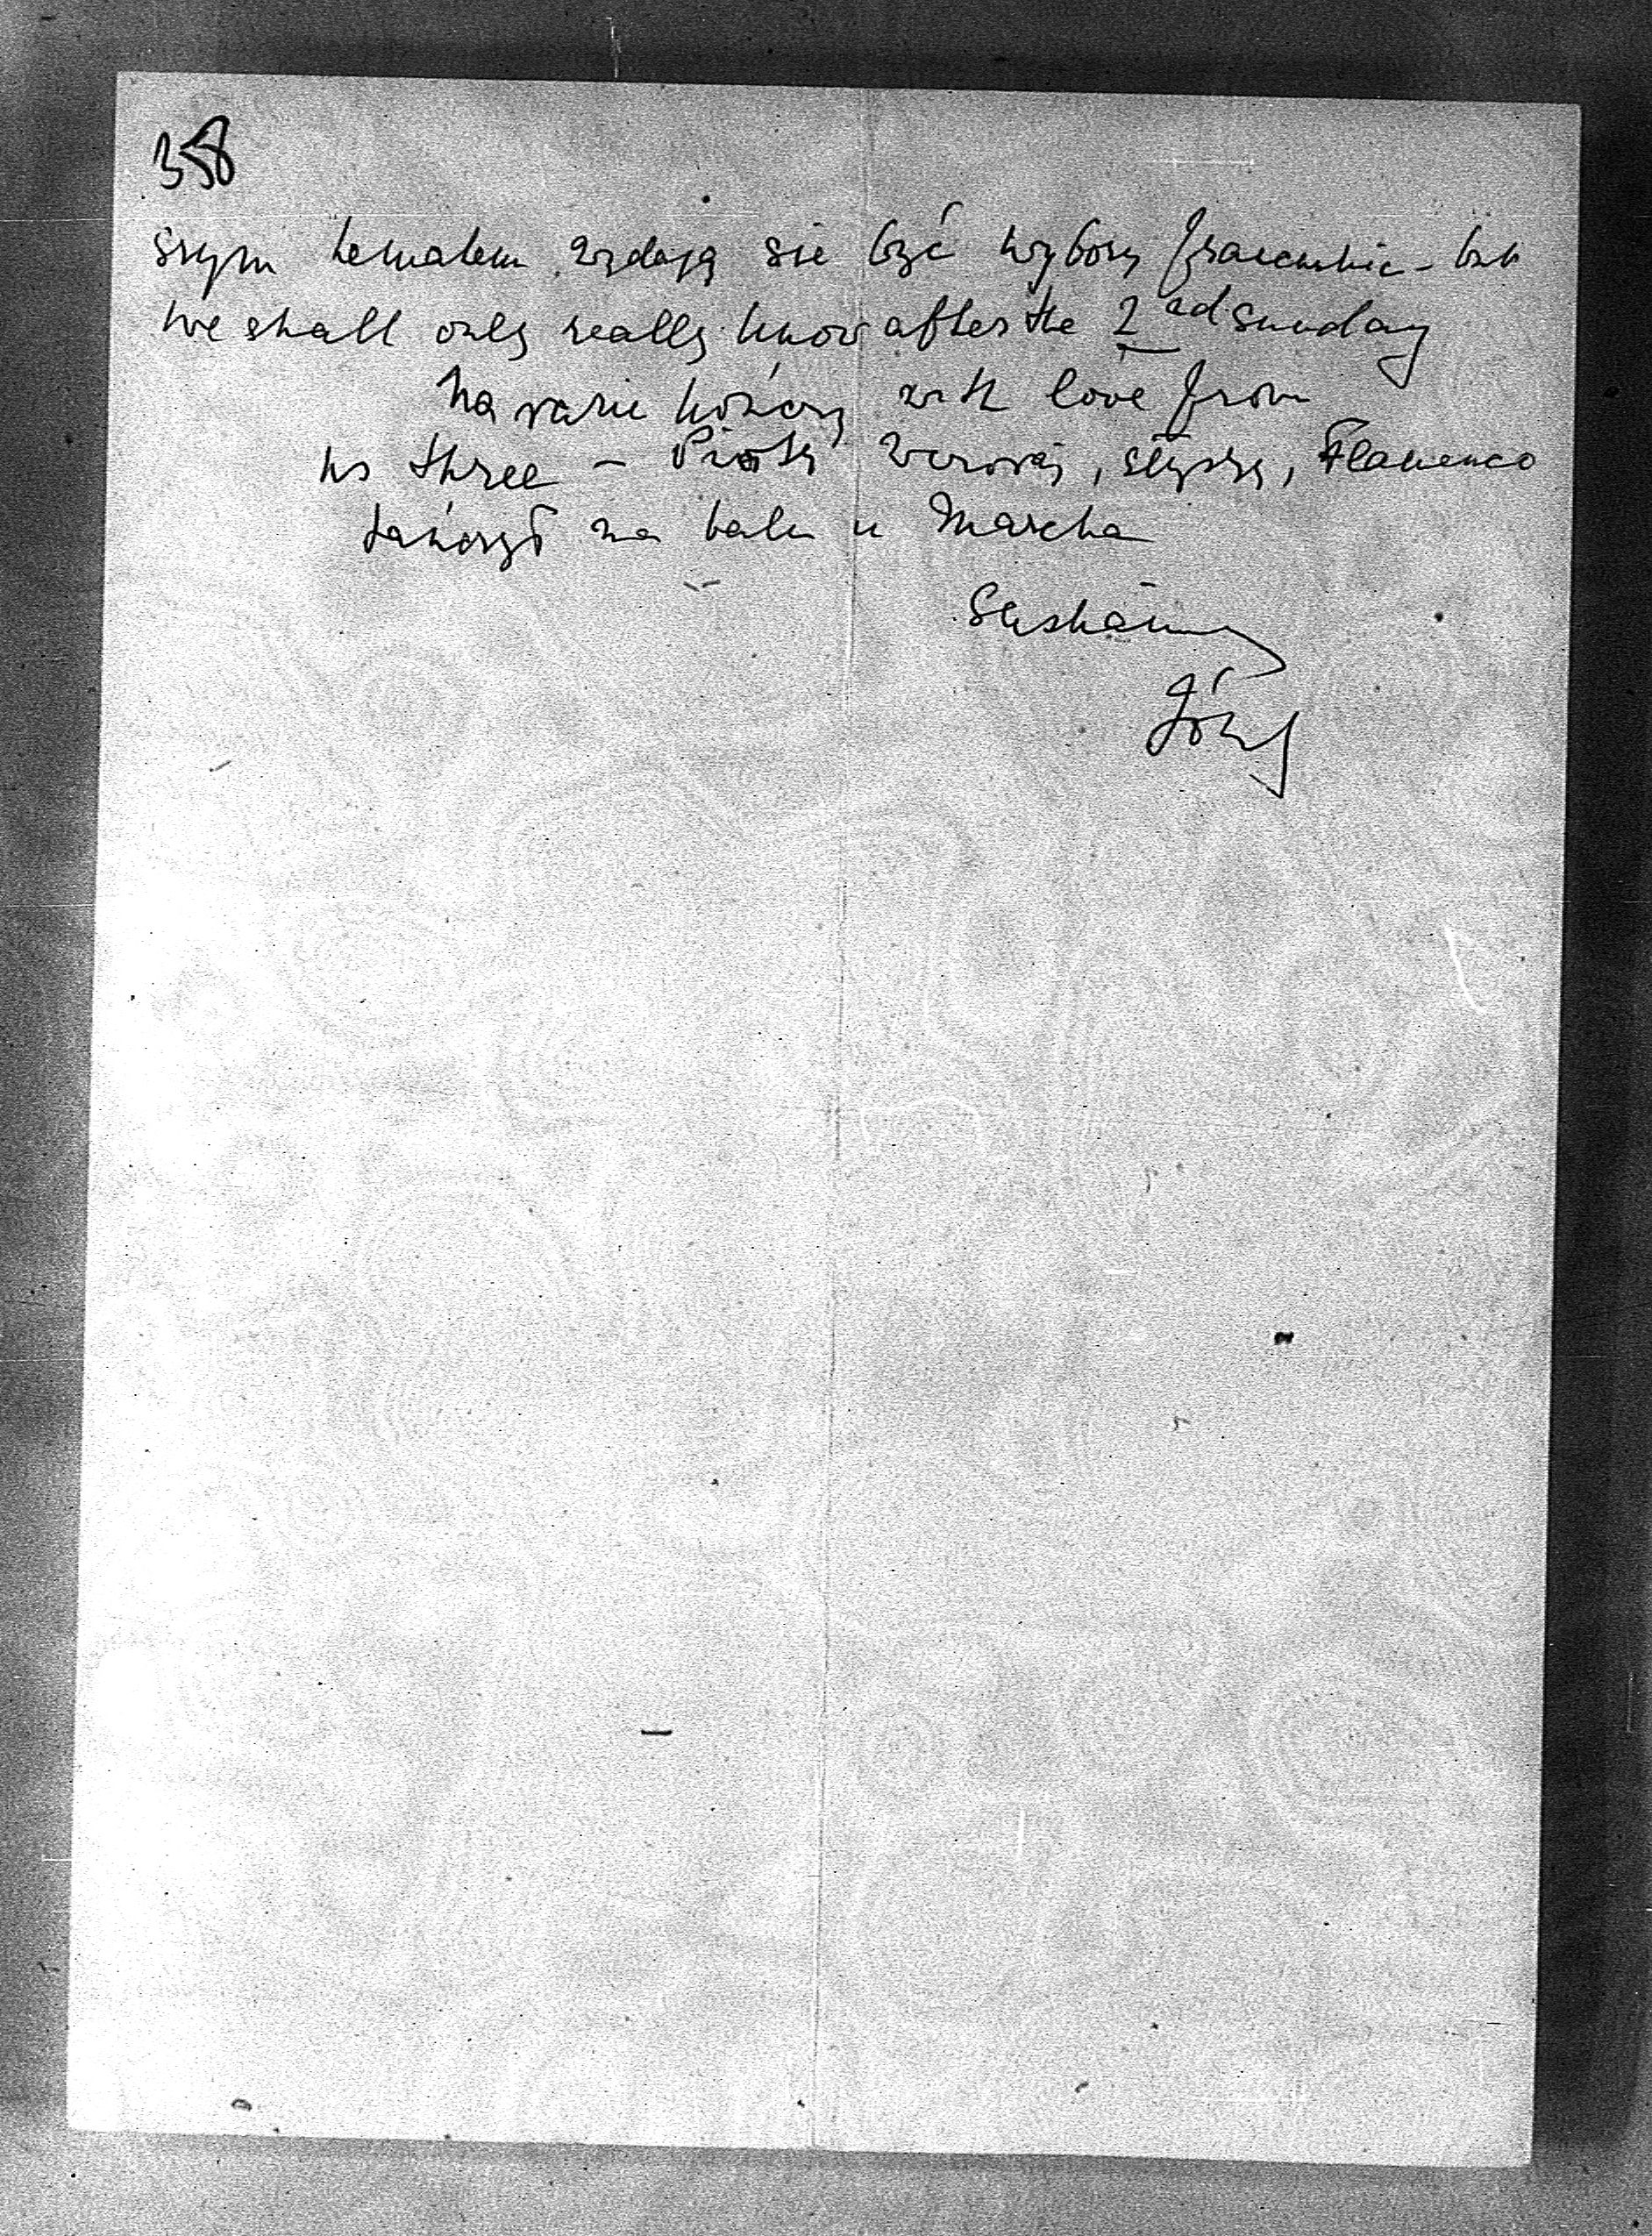 358
szym tematem zdają się być wybory francuskie - but
we shall only really know after the 2nd Sunday
Na razie kończę with love from
us three - Piotr wczoraj, słyszę, Flamenco
tańczył na balu u
Józef